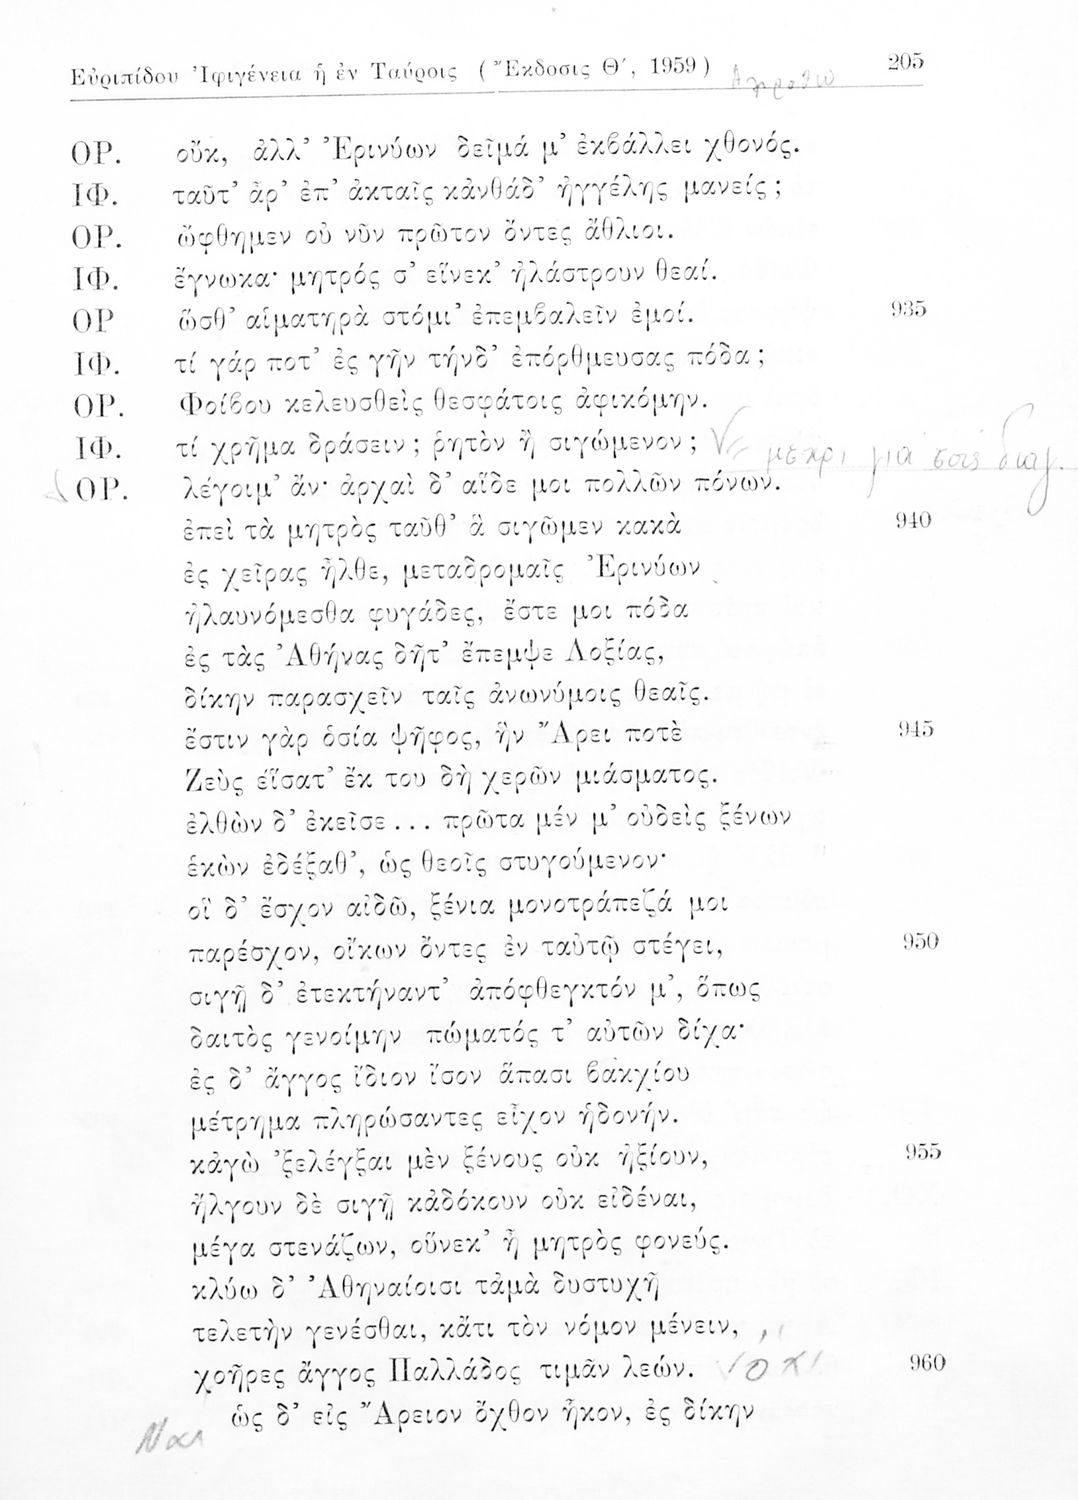 Εὐριπίδου Ἰφιγένεια ἡ ἐν Ταύροις (Ἔκδοσις Θ′, 1959) 205
ΟΡ. οὔκ, ἀλλ' Ἐρινύων δεῖμά μ' ἐκβάλλει χθονός.
ΙΦ. ταῦτ' ἆρ' ἐπ' ἀκταῖς κἀνθάδ' ἠγγέλης μανείς;
ΟΡ. ὤφθημεν οὐ νῦν πρῶτον ὄντες ἄθλιοι.
ΙΦ. ἔγνωκα· μητρός σ' εἵνεκ' ἠλάστρουν θεαί.
ΟΡ ὥσθ' αἱματηρὰ στόμι' ἐπεμβαλεῖν ἐμοί. 935
ΙΦ. τί γάρ ποτ' ἐς γῆν τήνδ' ἐπόρθμευσας πόδα;
ΟΡ. Φοίβου κελευσθεὶς θεσφάτοις ἀφικόμην.
ΙΦ. τί χρῆμα δράσειν; ῥητὸν ἢ σιγώμενον; μέχρι για εσις διαγ.
ΟΡ. λέγοιμ' ἄν· ἀρχαὶ δ' αἵδε μοι πολλῶν πόνων.
ἐπεὶ τὰ μητρὸς ταῦθ' ἃ σιγῶμεν κακὰ 940
ἐς χεῖρας ἦλθε, μεταδρομαῖς Ἐρινύων
ἠλαυνόμεσθα φυγάδες, ἔστε μοι πόδα
ἐς τὰς Ἀθήνας δῆτ' ἔπεμψε Λοξίας,
δίκην παρασχεῖν ταῖς ἀνωνύμοις θεαῖς.
ἔστιν γὰρ ὁσία ψῆφος, ἣν Ἄρει ποτὲ 945
Ζεὺς εἵσατ' ἔκ του δὴ χερῶν μιάσματος.
ἐλθὼν δ' ἐκεῖσε... πρῶτα μέν μ' οὐδεὶς ξένων
ἑκὼν ἐδέξαθ', ὡς θεοῖς στυγούμενον·
οἳ δ' ἔσχον αἰδῶ, ξένια μονοτράπεζά μοι
παρέσχον, οἴκων ὄντες ἐν ταὐτῷ στέγει, 950
σιγῇ δ' ἐτεκτήναντ' ἀπόφθεγκτόν μ', ὅπως
δαιτὸς γενοίμην πώματός τ' αὐτῶν δίχα·
ἐς δ' ἄγγος ἴδιον ἴσον ἅπασι βακχίου
μέτρημα πληρώσαντες εἶχον ἡδονήν.
κἀγὼ 'ξελέγξαι μὲν ξένους οὐκ ἠξίουν, 955
ἤλγουν δὲ σιγῇ κἀδόκουν οὐκ εἰδέναι,
μέγα στενάζων, οὕνεκ' ἦ μητρὸς φονεύς.
κλύω δ' Ἀθηναίοισι τἀμὰ δυστυχῆ
τελετὴν γενέσθαι, κἄτι τὸν νόμον μένειν,
χοῆρες ἄγγος Παλλάδος τιμᾶν λεών. ΟΧΙ 960
ὡς δ' εἰς Ἄρειον ὄχθον ἧκον, ἐς δίκην
Ναι